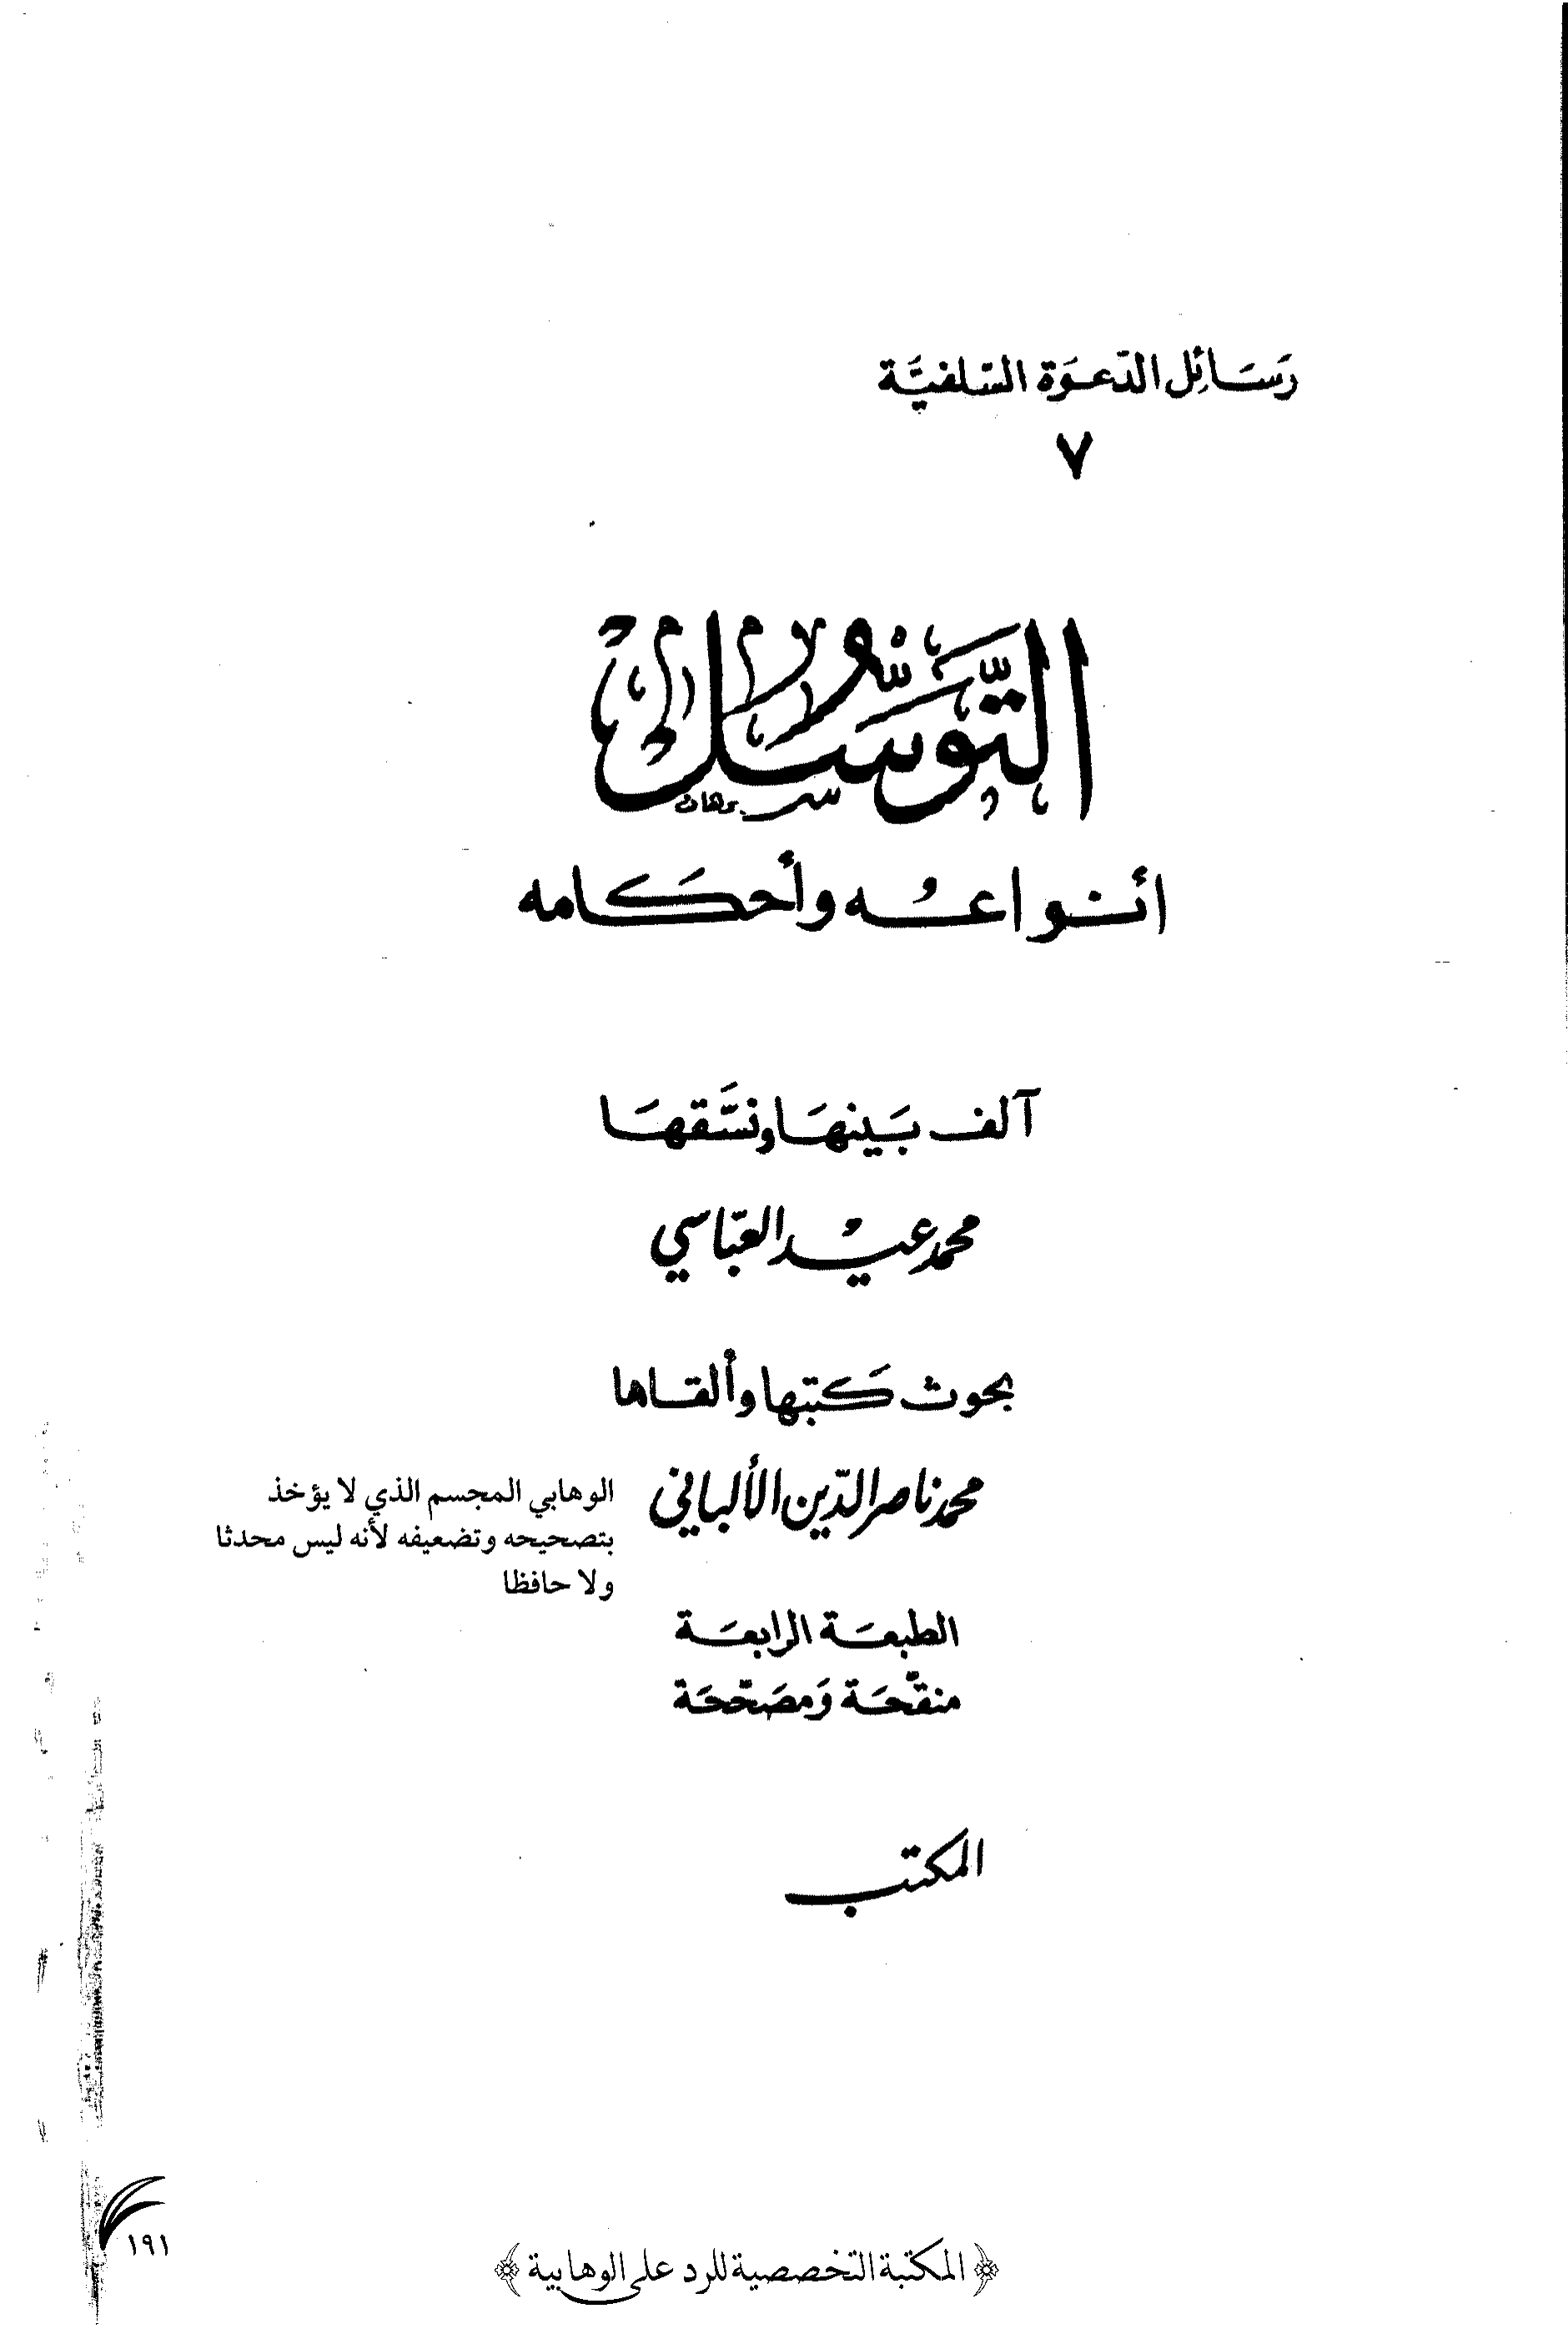 رَسَائِل الدّعوَة السّلفيَّة
٧
التَّوَسُّل
أنواعُه وأحكَامه
آلف بَينهَا ونسَّقهَا
محمد عيدُ العبّاسي
بحوث كَتبها وألقاها
محمد ناصر الدّين الألباني
الوهابي المجسم الذي لا يؤخذ
بتصحيحه وتضعيفه لأنه ليس محدثا
ولا حافظا
الطبعَة الرابعَة
منقّحَة وَمصَحّحَة
المكتب
١٩١
﴿المكتبة التخصصية للرد على الوهابية﴾